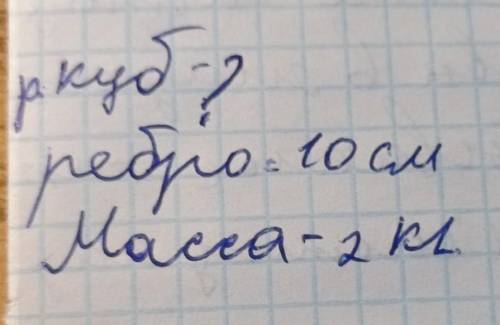 р куб - ?
ребро = 10 см
Масса - 2 кг.